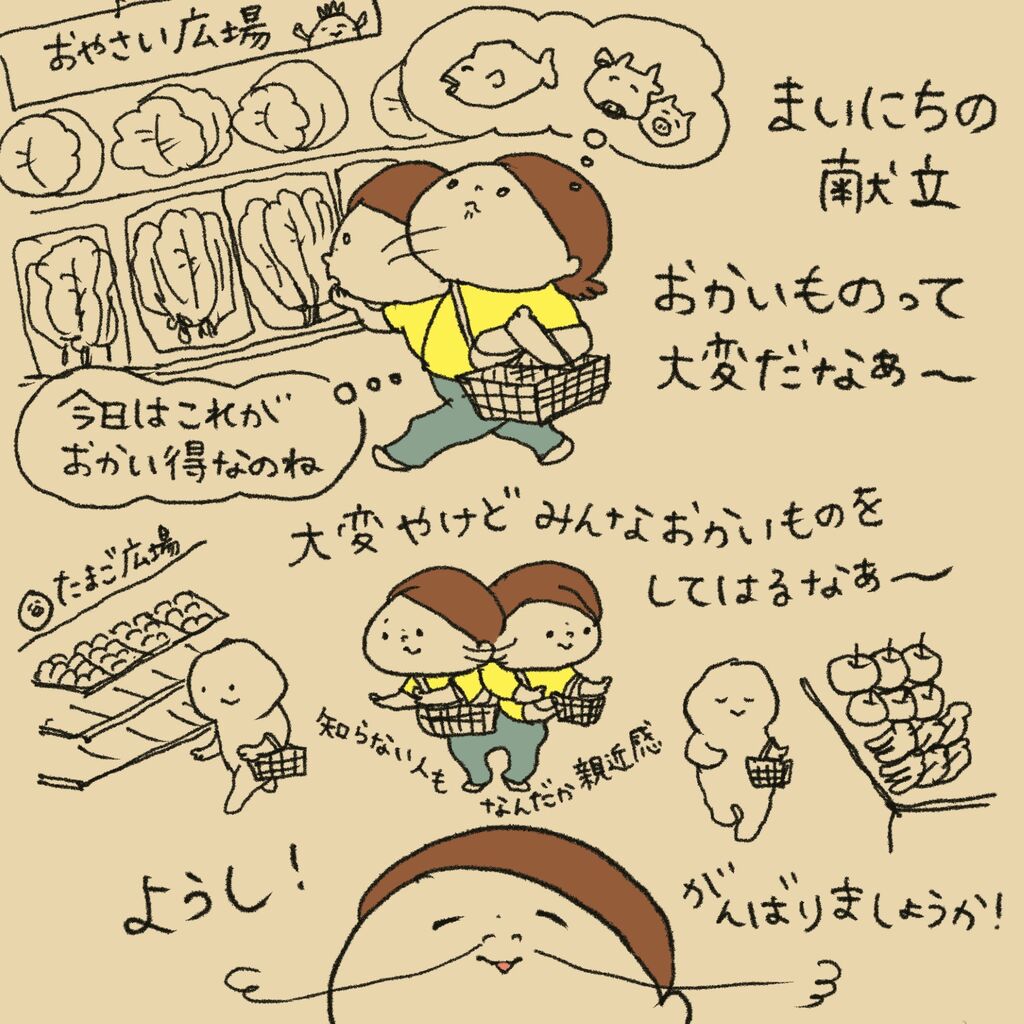 おやさい広場
まいにちの
献立
おかいものって
大変だなぁ〜
今日はこれが
おかい得なのね
大変やけど みんなおかいものを
してはるなぁ〜
たまご広場
知らない人も
なんだか親近感
ようし!
がんばりましょうか!